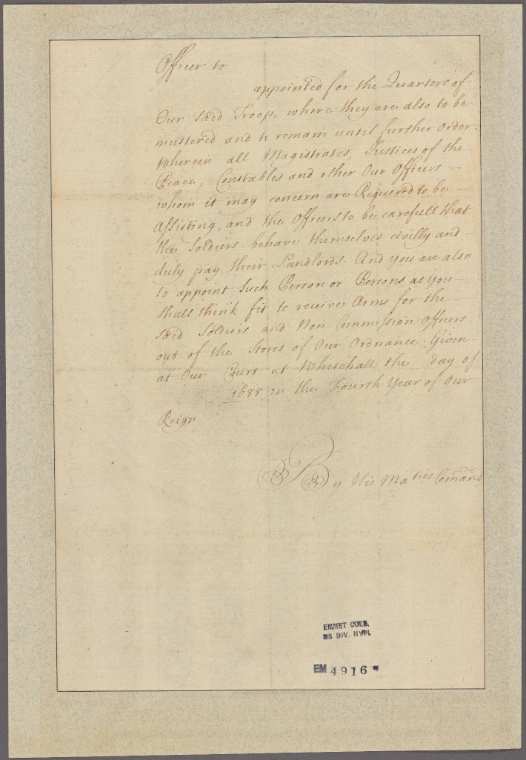 Officer to
appointed for the Quarters of
Our said Troop, where they are also to be
mustered and to remain until further Order.
Wherein all Magistrates, Justices of the
Peace, Constables and other Our Officers
whom it may concern are Required to be
Assisting, and the Officers to be carefull that
the Soldiers behave themselves civilly and
duly pay their Landlords. And you are also
to appoint such Person or Persons as you
shall think fit to receive Arms for the
said Soldiers and Non Commission Officers
out of the Stores of Our Ordnance. Given
at Our Court at Whitehall the day of
1688 in the Fourth Year of Our
Reign
By His Maties Comand
EMMET COLL.
MS DIV. NYPL.
EM 4916